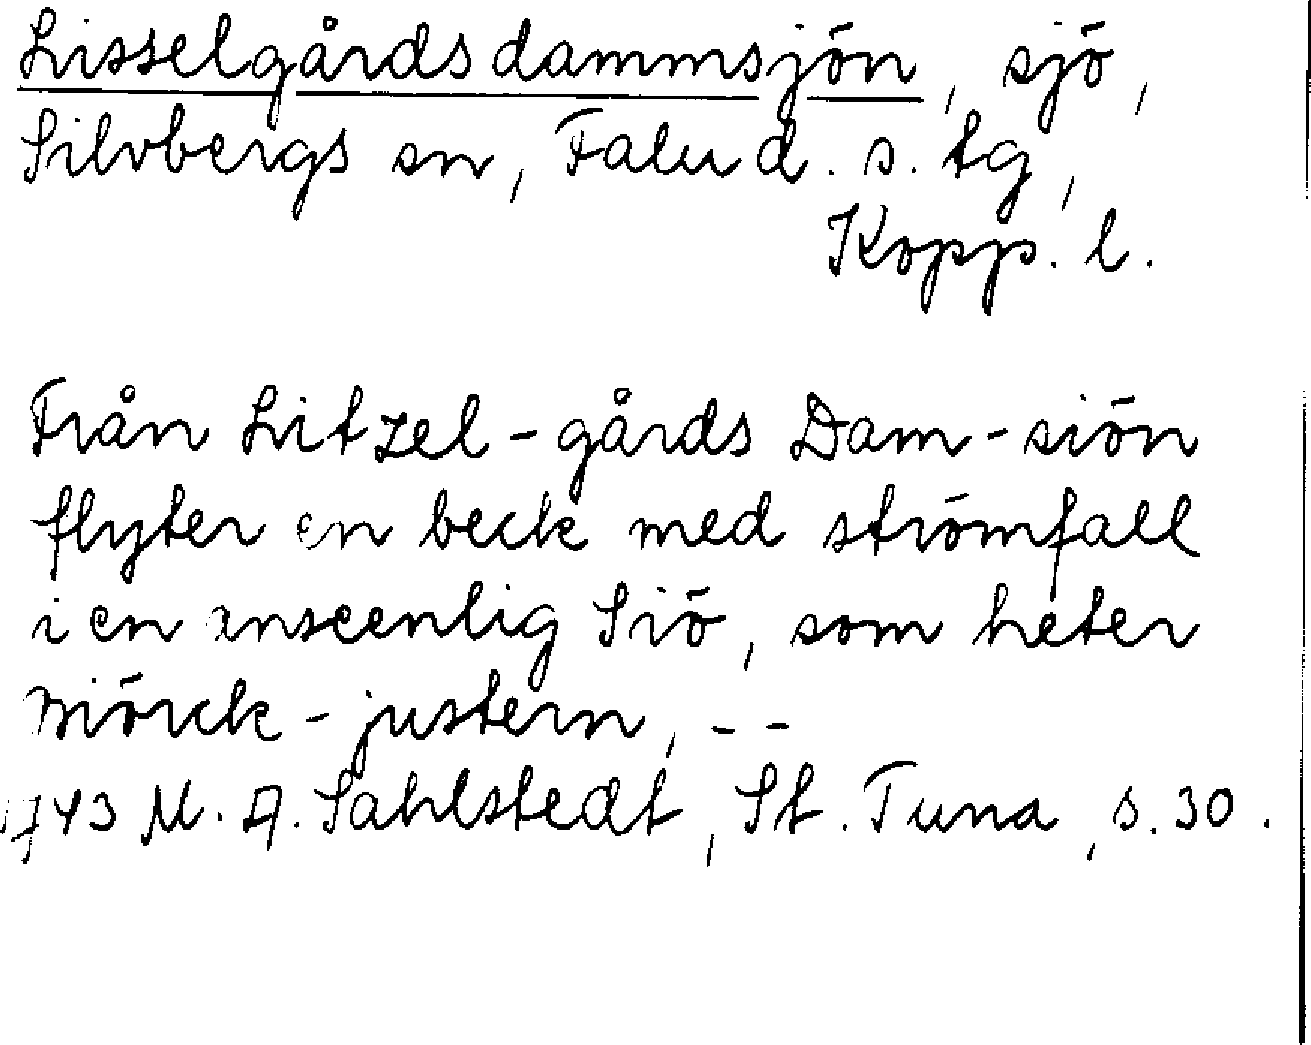 Lisselgårdsdammsjön, sjö,
Silvbergs sn, Falu d. s. tg,
Kopp. l.
Från Litzel-gårds Dam-siön
flyter en beck med strömfall
i en anseenlig Siö, som heter
Mörck-justern, --
1743 M. A. Sahlstedt, St. Tuna, s. 30.